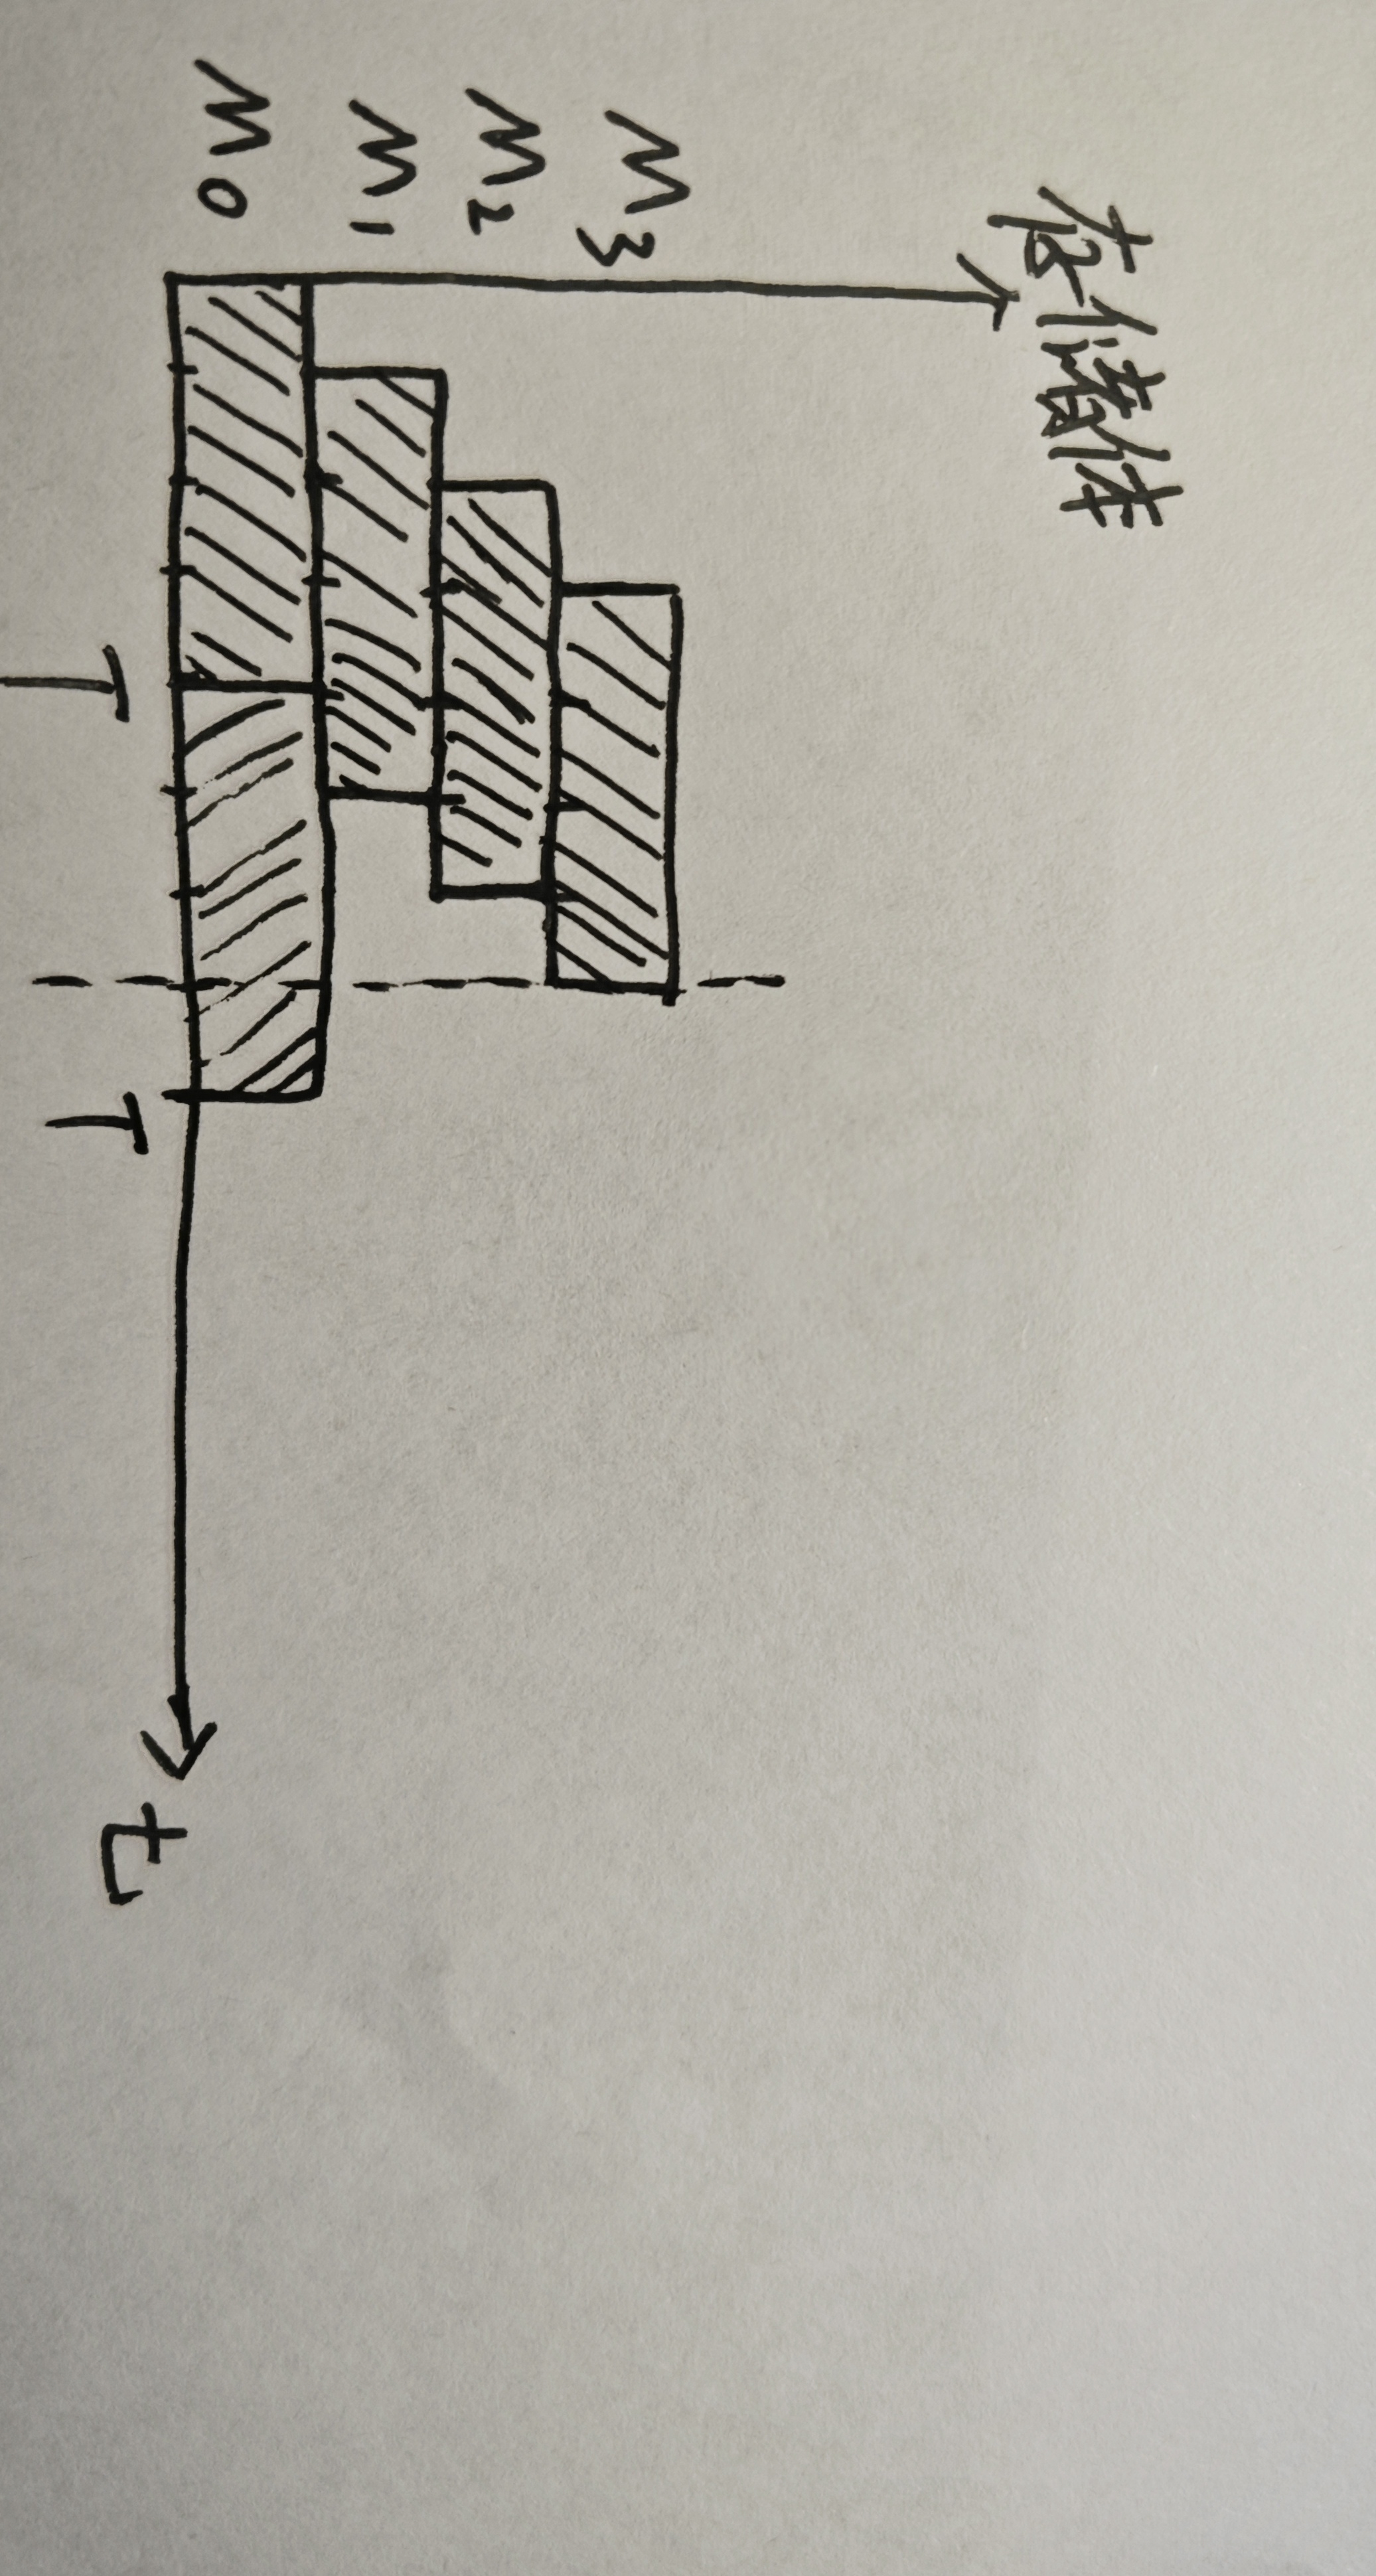 存储体
M3
M2
M1
M0
T
T
t